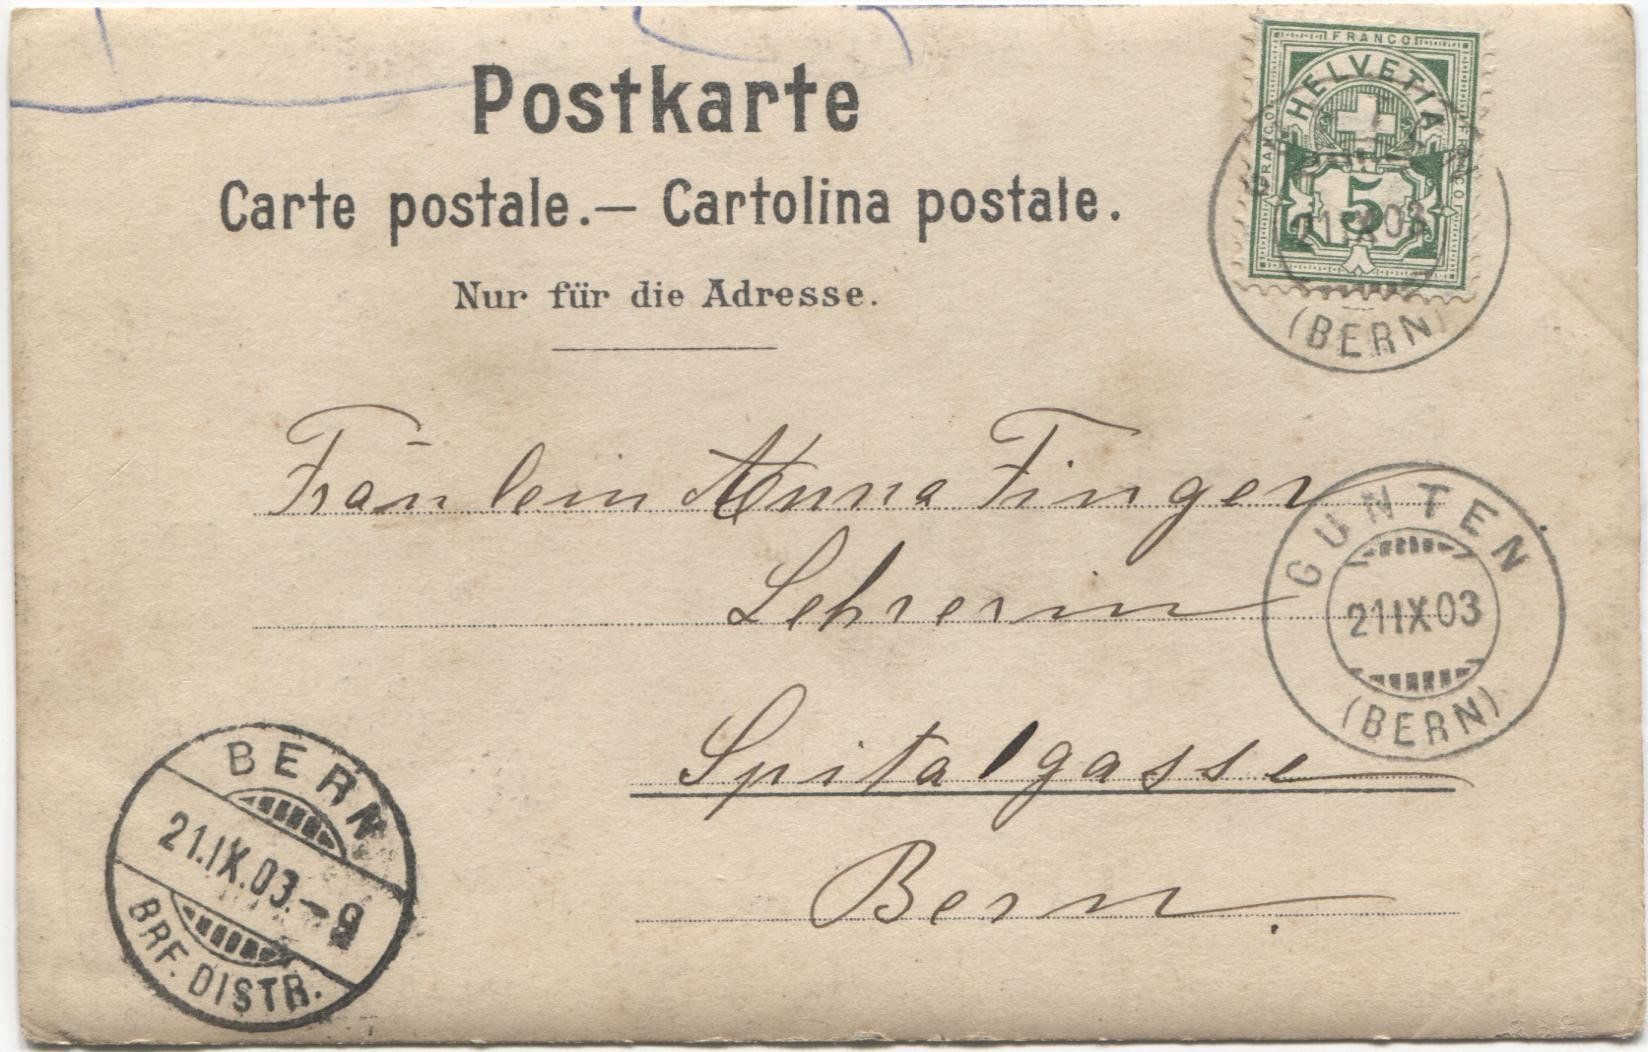 Postkarte
Carte postale.— Cartolina postale.
Nur für die Adresse.
FRANCO
HELVETIA
FRANCO
FRANCO
5
21 IX 03
(BERN)
Fräulein Anna Finger
Lehrerin
Spitalgasse
Bern.
GUNTEN
21 IX 03
(BERN)
BERN
21.IX.03.–9
BRF. DISTR.